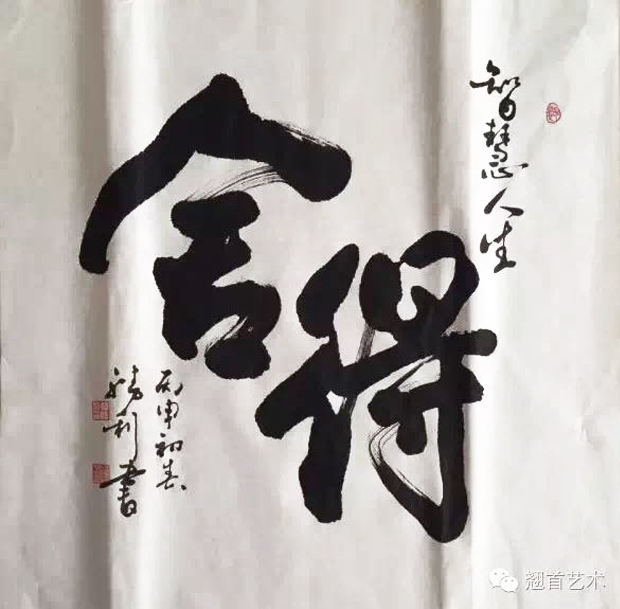 智慧人生
舍得
丙申初春
利書
翘首艺术